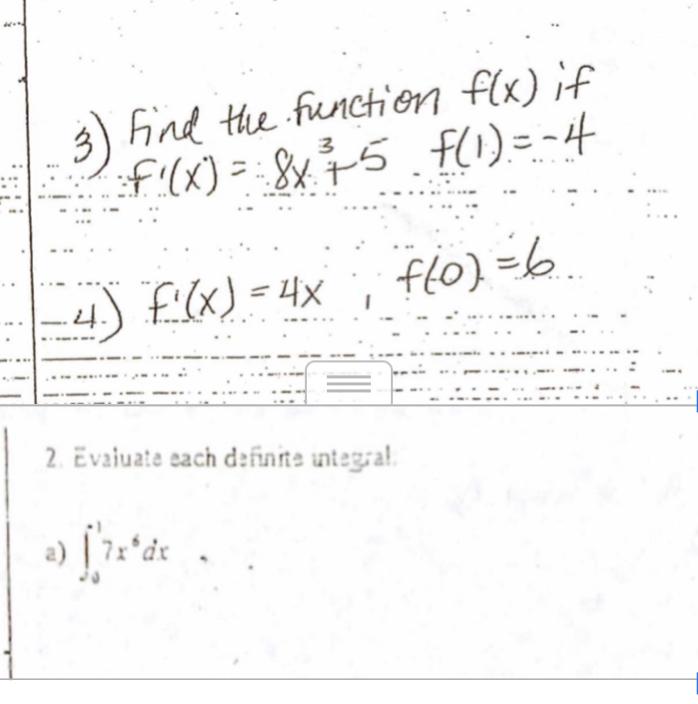 3) Find the function f(x) if
f'(x) = 8x³+5 f(1)=-4
4) f'(x) = 4x , f(0)=6
2. Evaluate each definite integral:
a) ∫₀¹ 7x⁶ dx